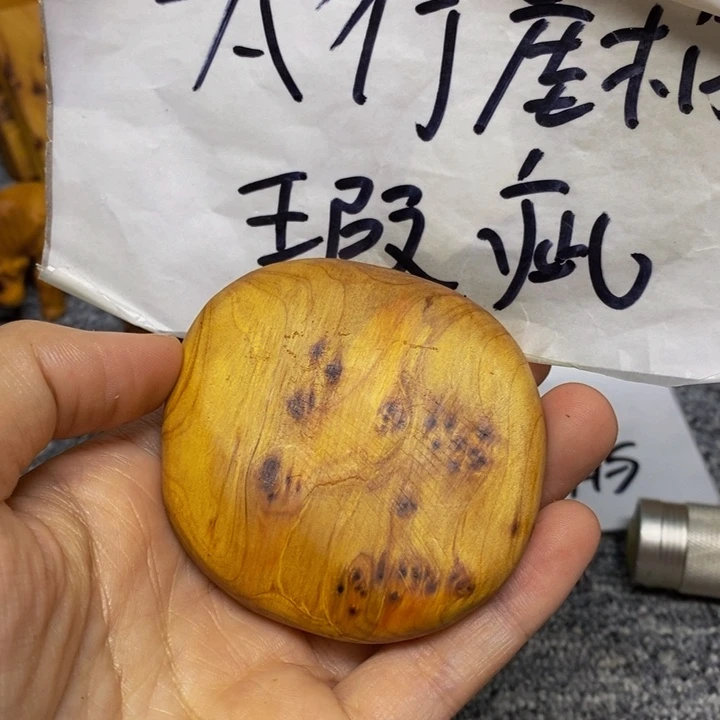 太行崖柏
瑕疵